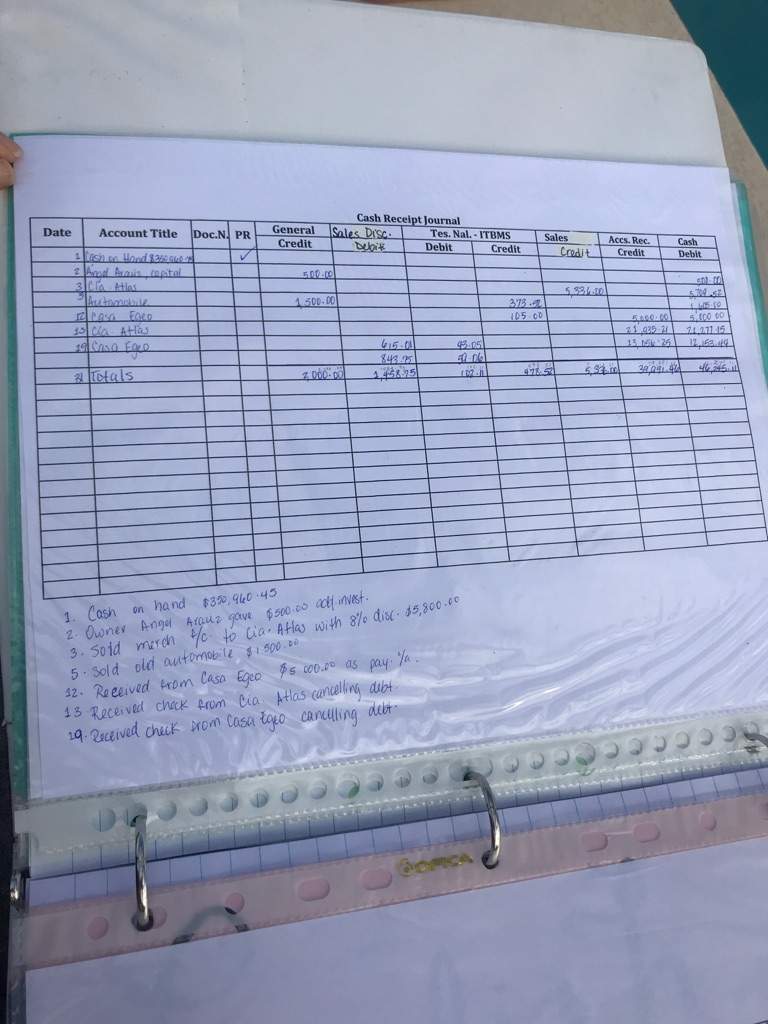 Cash Receipt Journal
Date Account Title Doc.N. PR General Sales Disc. Tes. Nal. - ITBMS Sales Accs. Rec. Cash
Credit Debit Debit Credit Credit Credit Debit
1 Cash on Hand $350,960.45 ✓
2 Angel Arauz, capital 500.00 500.00
3 Cia Atlas 5,336.00
Automobile 1,500.00 1,605.00
12 Casa Egeo 105.00 5,000.00 5,000.00
13 Cia. Atlas 21,277.15
19 Casa Egeo 615.01 43.05
843.75
31 Totals 2,000.00 1,458.75 102.11 478.52
1. Cash on hand $350,960.45
2. Owner Angel Arauz gave $500.00 add. invest.
3. Sold merch f/c to Cia. Atlas with 8% disc. $5,800.00
5. Sold old automobile $1,500.00
12. Received from Casa Egeo $5,000.00 as pay. /a.
13. Received check from Cia. Atlas cancelling debt.
19. Received check from Casa Egeo cancelling debt.